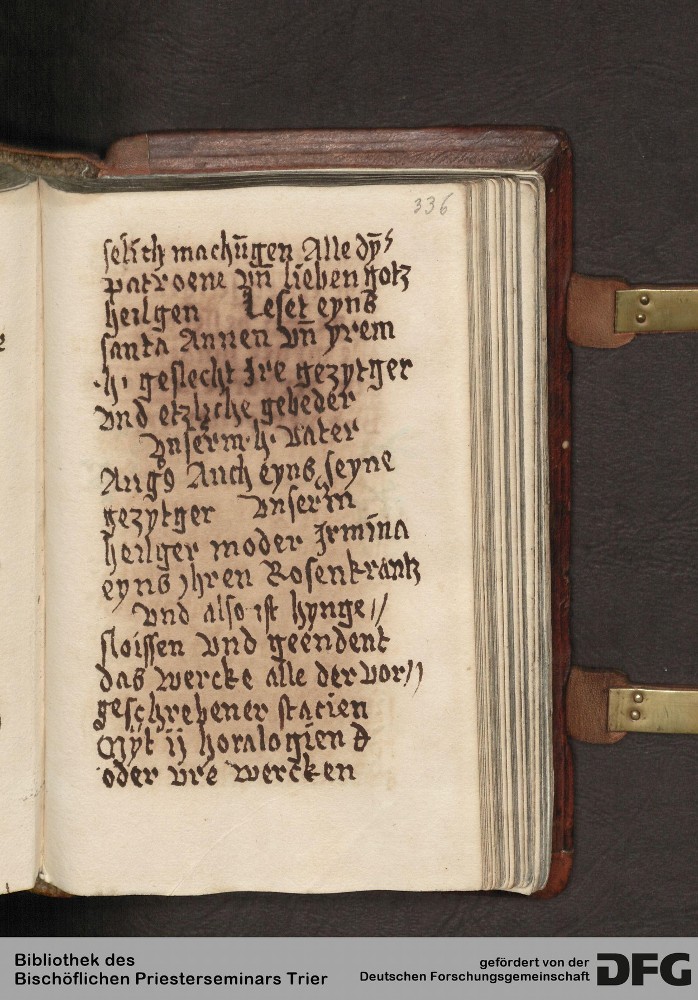 336
selich machu̅gen Alle dy̅ˢ
patroene vn̅ lieben gotz
heilgen Leset eyns
santa Annen vn̅ yrem
·h· geslecht Ire gezytger
vnd etzliche gebeder
vnserm·h· vater
Augꝰ Auch eyns seyne
gezytger vnserm
heilger moder Irmina
eyns yhren Rosenkrantz
vnd also ist hynge //
sloissen vnd geendent
das wercke alle der vor //
geschrebener stacien
Myt ij horalogien
oder vre wercken
Bibliothek des
Bischöflichen Priesterseminars Trier
gefördert von der
Deutschen Forschungsgemeinschaft
DFG